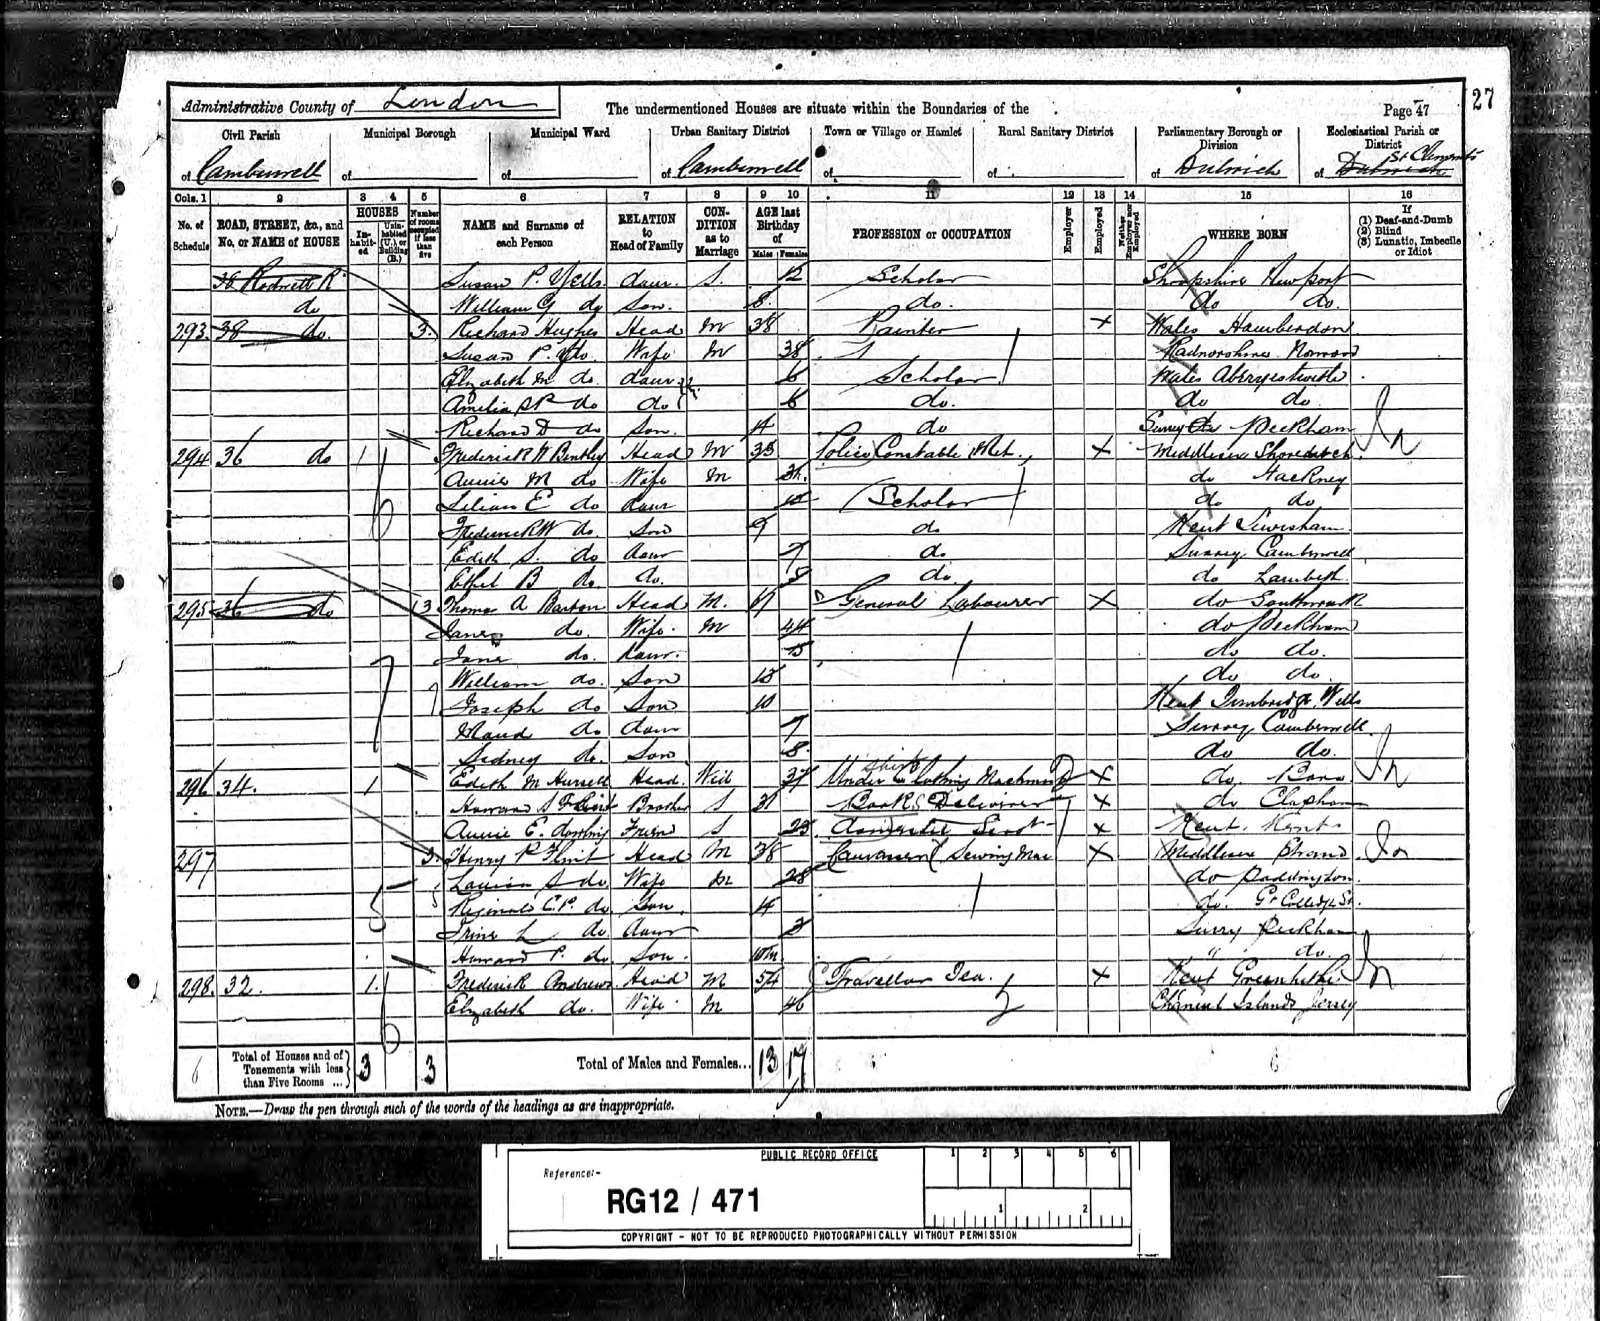 27
Administrative County of London
The undermentioned Houses are situate within the Boundaries of the
Page 47
Civil Parish
Municipal Borough
Municipal Ward
Urban Sanitary District
Town or Village or Hamlet
Rural Sanitary District
Parliamentary Borough or Division
Ecclesiastical Parish or District
of Camberwell
of
of
of Camberwell
of
of
of Dulwich
of Dulwich St Clements
Cols. 1 2 3 4 5 6 7 8 9 10 11 12 13 14 15 16
No. of Schedule
ROAD, STREET, &c., and No. or NAME of HOUSE
HOUSES
In-habit-ed
Unin-habited (U.) or Building (B.)
Number of rooms occupied if less than five
NAME and Surname of each Person
RELATION to Head of Family
CON-DITION as to Marriage
AGE last Birthday of
Males Females
PROFESSION or OCCUPATION
Employer
Employed
Neither Employer nor Employed
WHERE BORN
If
(1) Deaf-and-Dumb
(2) Blind
(3) Lunatic, Imbecile or Idiot
Susan P. daur. S. 12 Scholar Shropshire Newport
do William G do Son. 8. do. do do.
293. 38 do. 3. Richard Hughes Head M 38 Painter X Wales
Susan P. do. Wife M 38 Radnorshire
Elizabeth M do. daur. 6 Scholar Wales Aberystwith
Amelia do do 6 do. do do.
Richard D do Son. 4 do Surrey Peckham
294 36 do 1 Frederick W Bentley Head M 35 Police Constable Met. X Middlesex Shoreditch
Annie M do Wife M do Hackney
Lilian E do daur 10 Scholar do do
Frederick W do. Son 9 do Kent Lewisham
Edith S. do. daur 7 do Surrey Camberwell
Ethel B do. do. 5 do. do Lambeth
295 36 do 3 Thomas A Barton Head M. General Labourer X do Southwark
Jane do. Wife. M 44 do Peckham
Jane do. daur. 15 do do.
William do. Son 13 do do.
Joseph do Son 10 Kent Tunbridge Wells
Maud do daur 7 Surrey Camberwell
Sidney do. Son 8. do do.
296 34. 1 Edith M Head. Wid 37 Under Clothing X do.
Howard S Brother S 30 Books Deliverer X do Clapham
Annie E. Friend S 23 domestic Servt X Kent.
297 3. Henry P Flint Head M 38 Canvasser Sewing Mac X Middlesex Strand
Louisa S do. Wife M 28 do Paddington
Reginald C.P. do. Son. 4 do.
L do. daur 3 Surry Peckham
Howard P. do. Son. 10m " do.
298. 32. 1. Frederick Andrews Head M 54 Traveller Tea. X Kent Greenhithe
Elizabeth do. Wife M 46 Channel Islands Jersey
6
Total of Houses and of Tenements with less than Five Rooms ...
3
3
Total of Males and Females...
13 17
6
NOTE.—Draw the pen through such of the words of the headings as are inappropriate.
PUBLIC RECORD OFFICE
1 2 3 4 5 6
Reference:-
RG12 / 471
1 2
COPYRIGHT - NOT TO BE REPRODUCED PHOTOGRAPHICALLY WITHOUT PERMISSION